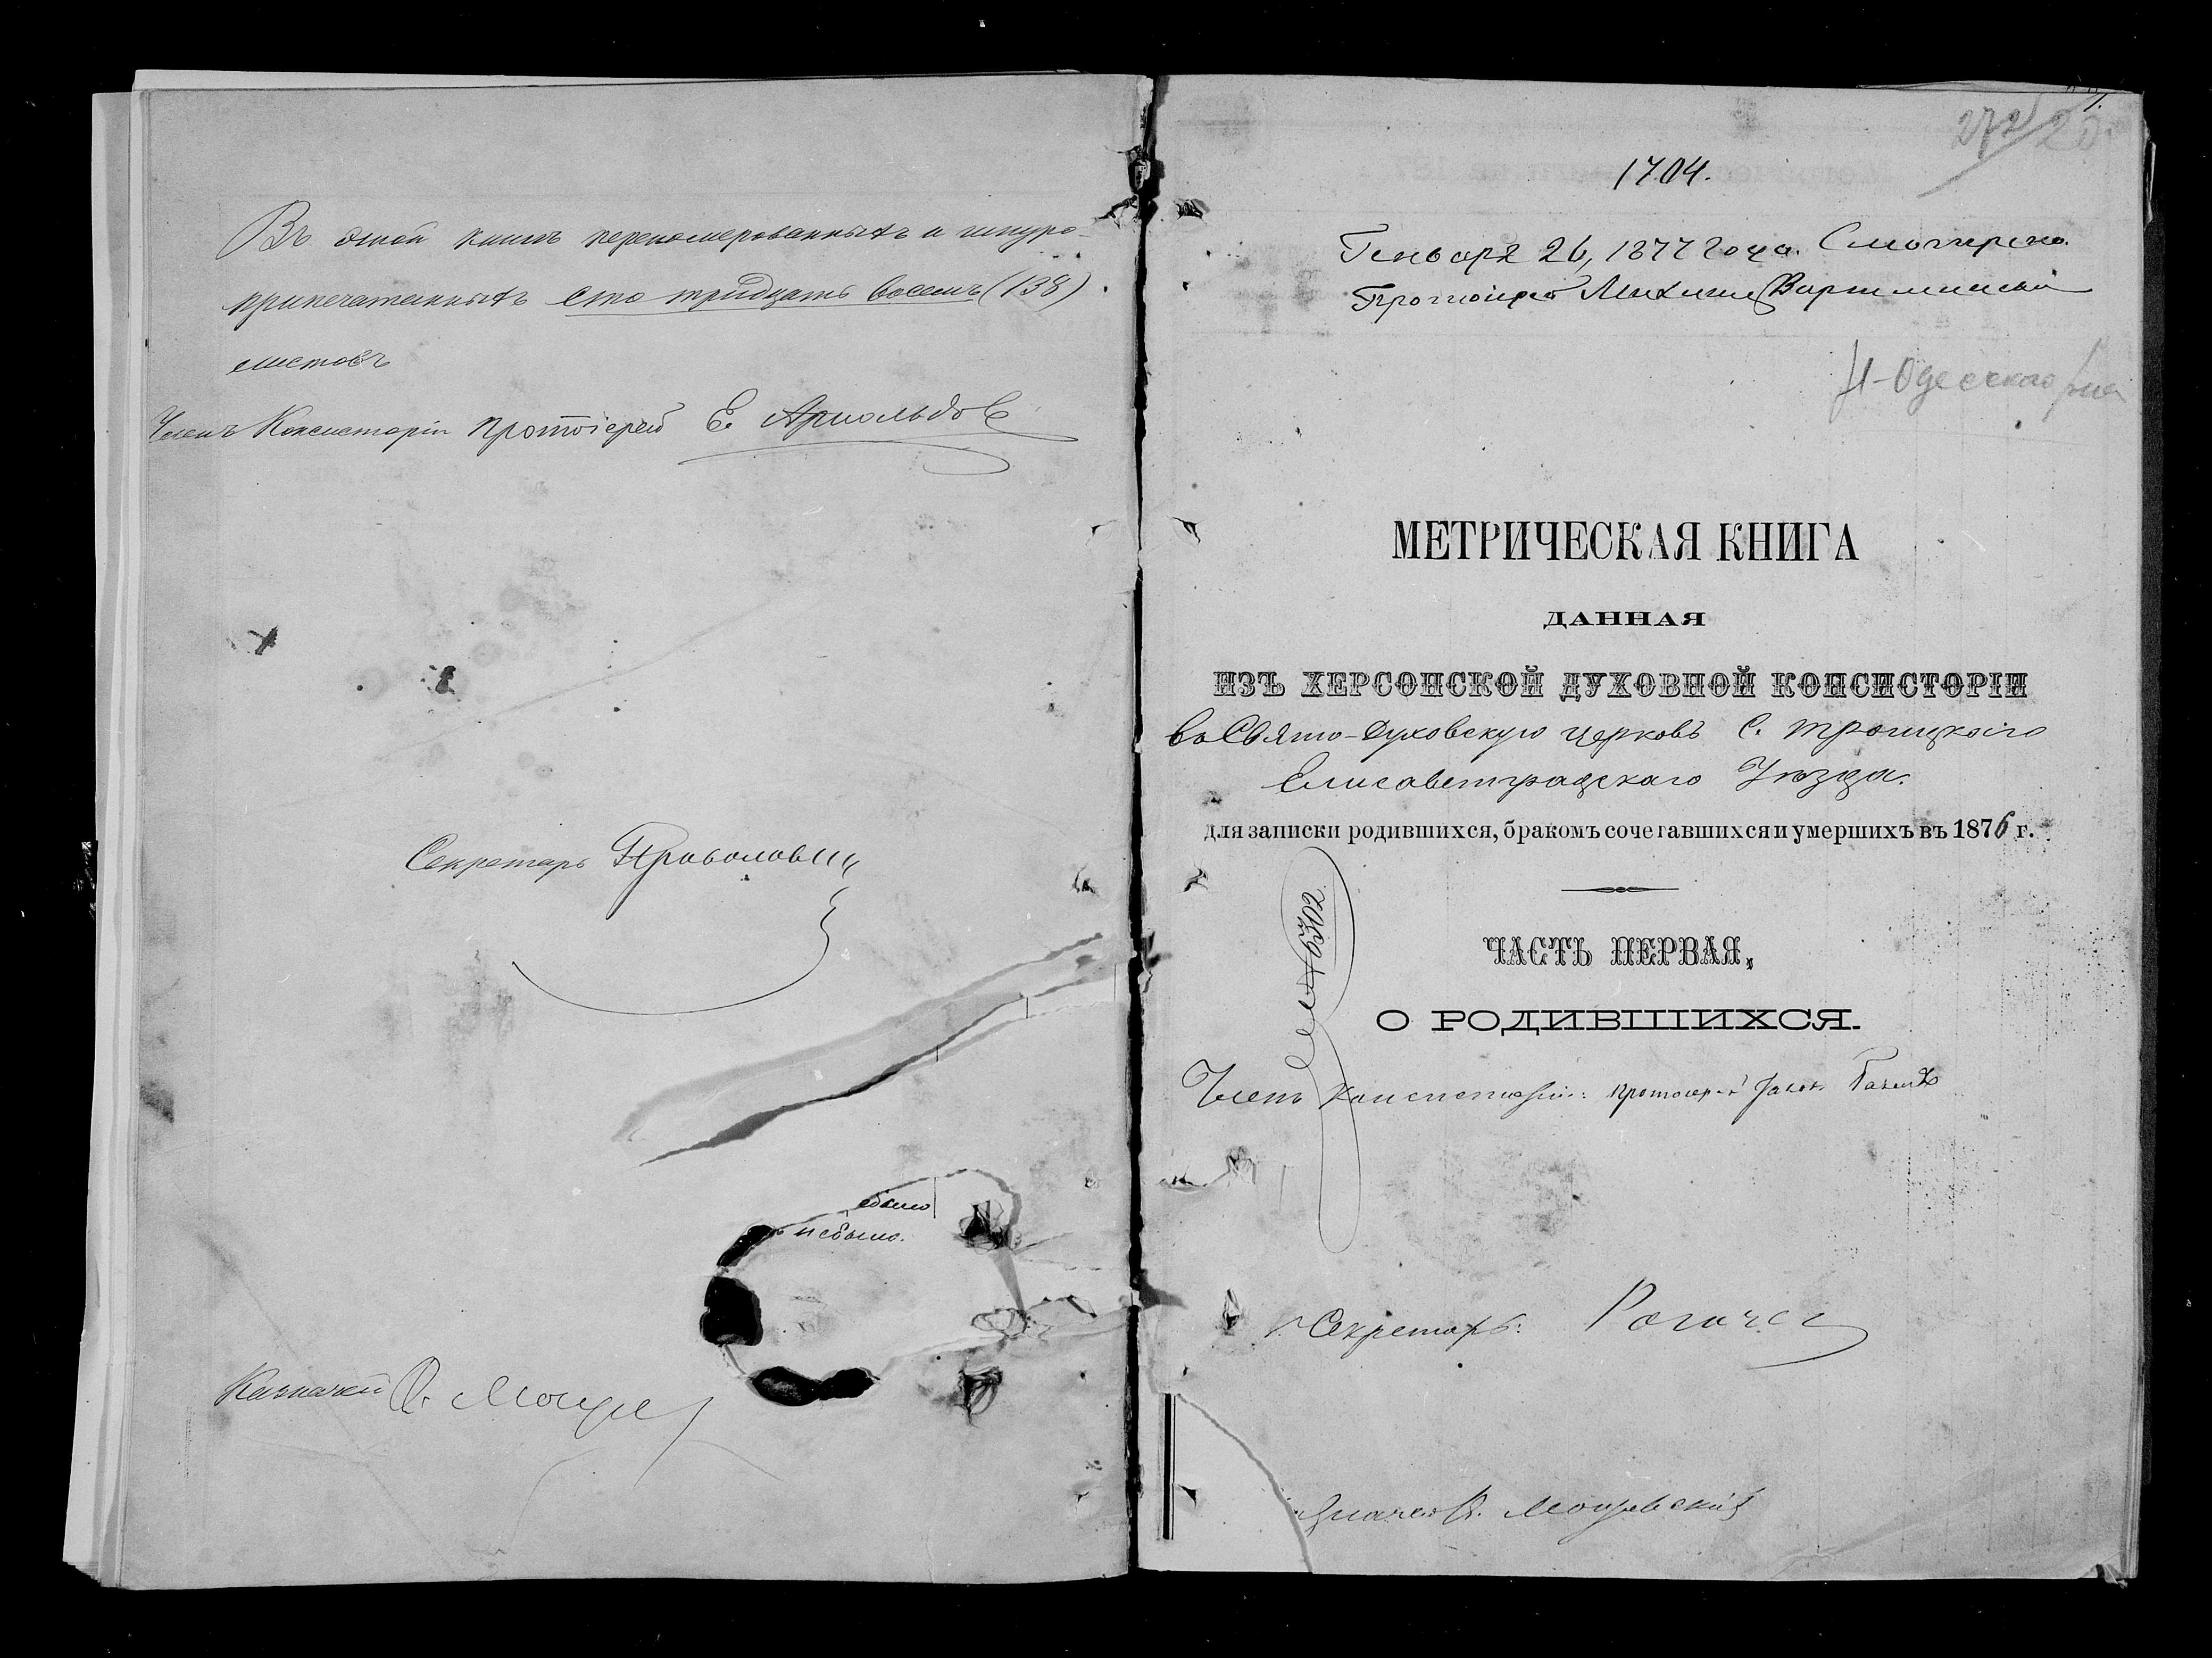 Въ этой книгѣ перенумерованныхъ и шнуро-
припечатанныхъ сто тридцать восемь (138)
листовъ
Членъ Консисторіи Протоіерей Е. Арнольдовъ
Секретарь
небыло.
Казначей
272
1704.
Генваря 26, 1877 года. Смотрено.
Протоіерей Михаилъ
Н-Одесскаго
МЕТРИЧЕСКАЯ КНИГА
ДАННАЯ
ИЗЪ ХЕРСОНСКОЙ ДУХОВНОЙ КОНСИСТОРІИ
въ Свято-Духовскую церковь С. Троицкаго
Елисаветградскаго Уѣзда.
для записки родившихся, бракомъ сочетавшихся и умершихъ въ 1876 г.
6302
ЧАСТЬ ПЕРВАЯ,
О РОДИВШИХСЯ.
Членъ Консисторіи: Протоіерей
Секретарь: